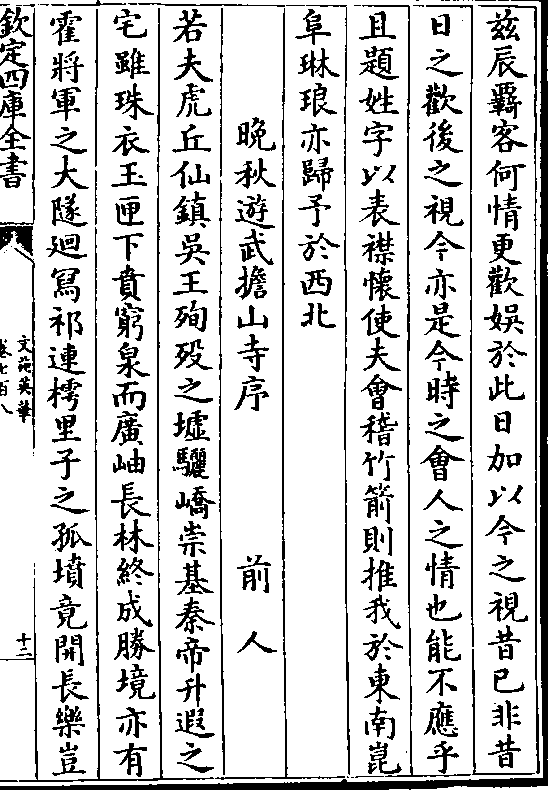 兹辰羈客何情更歡娱於此日加以今之視昔已非昔
日之歡後之視今亦是今時之會人之情也能不應乎
且題姓字以表襟懷使夫會稽竹箭則推我於東南崑
阜琳琅亦歸予於西北
晚秋遊武擔山寺序 前人
若夫虎丘仙鎮吳王殉殁之墟驪嶠崇基秦帝升遐之
宅雖珠衣玉匣下賁窮泉而廣岫長林終成勝境亦有
霍將軍之大隧廻冩祁連樗里子之孤墳竟開長樂豈
欽定四庫全書
文苑英華
卷七百八
十二